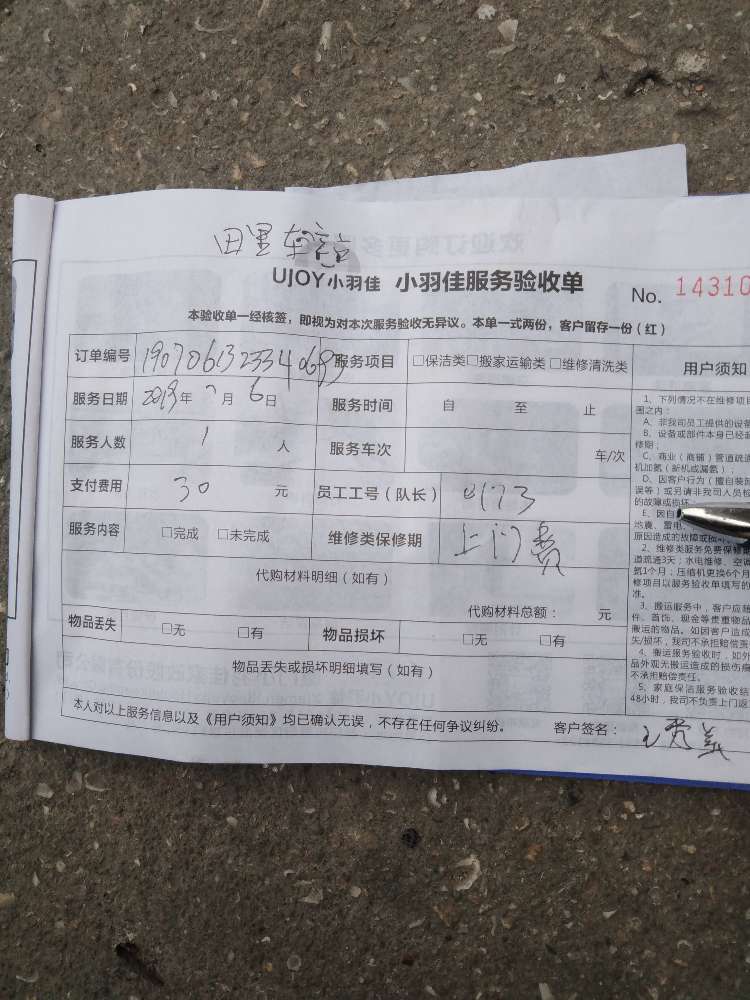 田里车言
UJOY小羽佳 小羽佳服务验收单
No. 14310
本验收单一经核签，即视为对本次服务验收无异议。本单一式两份，客户留存一份（红）
订单编号 服务项目 □保洁类□搬家运输类□维修清洗类
用户须知
服务日期 2019年7月6日 服务时间 自 至 止
服务人数 1 人 服务车次 车/次
支付费用 30 元 员工工号（队长）
服务内容 □完成 □未完成 维修类保修期 上门费
代购材料明细（如有）
代购材料总额： 元
物品丢失 □无 □有 物品损坏 □无 □有
物品丢失或损坏明细填写（如有）
本人对以上服务信息以及《用户须知》均已确认无误，不存在任何争议纠纷。 客户签名：
1、下列情况不在维修项目
围之内：
A、非我司员工提供的设备
B、设备或部件本身已经
修期；
C、商业（商铺）管道疏
机加氨（新机或漏氨）；
D、因客户行为（擅自装
误等）或另请非我司人员
的故障或损坏
E、因自
地震、雷电、
原因造成的故障或损
2、维修类服务免费保修
道疏通3天；水电维修、空调
氨1个月；压缩机更换6个月
修项目以服务验收单填写的
准。
3、搬运服务中，客户应
件、首饰、现金等贵重物品
搬运的物品。如因客户造成
失/损坏，我司不承担赔偿责
4、搬运服务验收时，如外
品外观无搬运造成的损伤
不承担赔偿责任。
5、家庭保洁服务验收结
48小时，我司不负责上门返